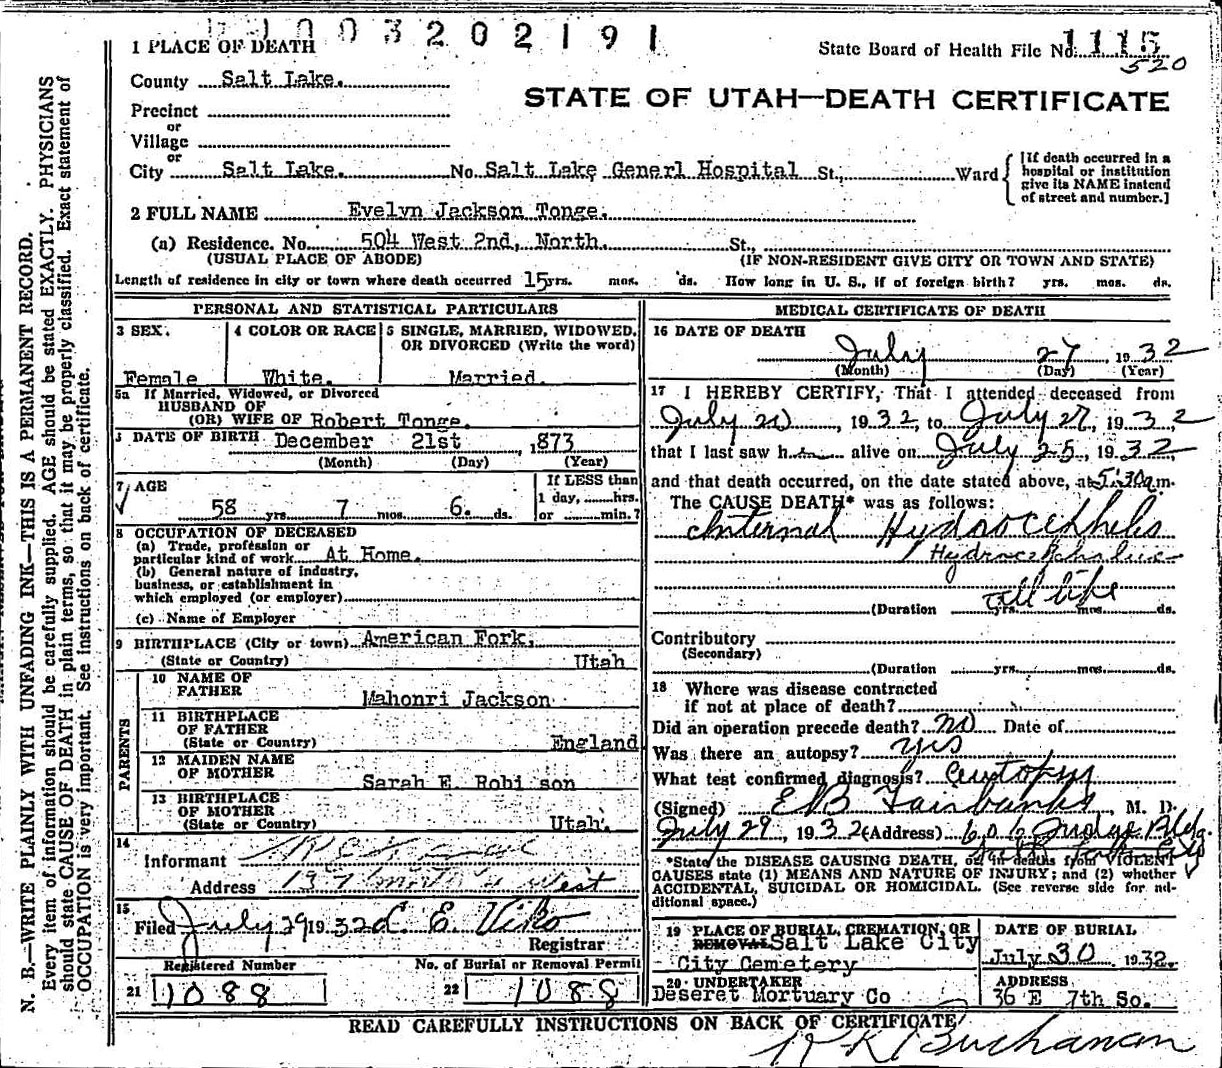 1003202191
1 PLACE OF DEATH
State Board of Health File No. 1115
520
County Salt Lake.
STATE OF UTAH—DEATH CERTIFICATE
Precinct
or
Village
or
City Salt Lake. No. Salt Lake Generl Hospital St., Ward
[If death occurred in a hospital or institution give its NAME instead of street and number.]
2 FULL NAME Evelyn Jackson Tonge.
(a) Residence. No. 504 West 2nd, North. St.,
(USUAL PLACE OF ABODE) (IF NON-RESIDENT GIVE CITY OR TOWN AND STATE)
Length of residence in city or town where death occurred 15 yrs. mos. ds. How long in U. S., if of foreign birth? yrs. mos. ds.
PERSONAL AND STATISTICAL PARTICULARS
3 SEX. 4 COLOR OR RACE 5 SINGLE, MARRIED, WIDOWED, OR DIVORCED (Write the word)
Female White. Married.
5a If Married, Widowed, or Divorced
HUSBAND OF
(OR) WIFE OF Robert Tonge.
DATE OF BIRTH December 21st ,873
(Month) (Day) (Year)
7 AGE If LESS than
58 yrs. 7 mos. 6. ds. 1 day, hrs.
or min.?
8 OCCUPATION OF DECEASED
(a) Trade, profession or
particular kind of work At Home.
(b) General nature of industry,
business, or establishment in
which employed (or employer)
(c) Name of Employer
9 BIRTHPLACE (City or town) American Fork,
(State or Country) Utah
PARENTS
10 NAME OF FATHER Mahonri Jackson
11 BIRTHPLACE OF FATHER
(State or Country) England
12 MAIDEN NAME OF MOTHER Sarah E. Robi son
13 BIRTHPLACE OF MOTHER
(State or Country) Utah.
14
Informant
Address West
15
Filed July 29 1932 E. Viko
Registrar
Registered Number No. of Burial or Removal Permit
21 1088 22 1088
MEDICAL CERTIFICATE OF DEATH
16 DATE OF DEATH
July 27, 1932
(Month) (Day) (Year)
17 I HEREBY CERTIFY, That I attended deceased from
July 20, 1932, to July 27, 1932
that I last saw h alive on July 25, 1932,
and that death occurred, on the date stated above, at 5:30 a.m.
The CAUSE DEATH* was as follows:
Internal
(Duration yrs. mos. ds.
all life
Contributory
(Secondary)
(Duration yrs. mos. ds.
18 Where was disease contracted
if not at place of death?
Did an operation precede death? no Date of
Was there an autopsy? yes
What test confirmed diagnosis? autopsy
(Signed) E B Fairbanks, M. D.
July 29, 1932 (Address) 606 Judge Bldg.
Salt Lake City
*State the DISEASE CAUSING DEATH, or in deaths from VIOLENT
CAUSES state (1) MEANS AND NATURE OF INJURY; and (2) whether
ACCIDENTAL, SUICIDAL OR HOMICIDAL. (See reverse side for additional space.)
19 PLACE OF BURIAL, CREMATION, OR REMOVAL Salt Lake City
City Cemetery
DATE OF BURIAL
July 30 1932.
20 UNDERTAKER
Deseret Mortuary Co
ADDRESS
36 E 7th So.
READ CAREFULLY INSTRUCTIONS ON BACK OF CERTIFICATE
R K Buchanan
N. B.—WRITE PLAINLY WITH UNFADING INK—THIS IS A PERMANENT RECORD.
Every item of information should be carefully supplied. AGE should be stated EXACTLY. PHYSICIANS
should state CAUSE OF DEATH in plain terms, so that it may be properly classified. Exact statement of
OCCUPATION is very important. See instructions on back of certificate.